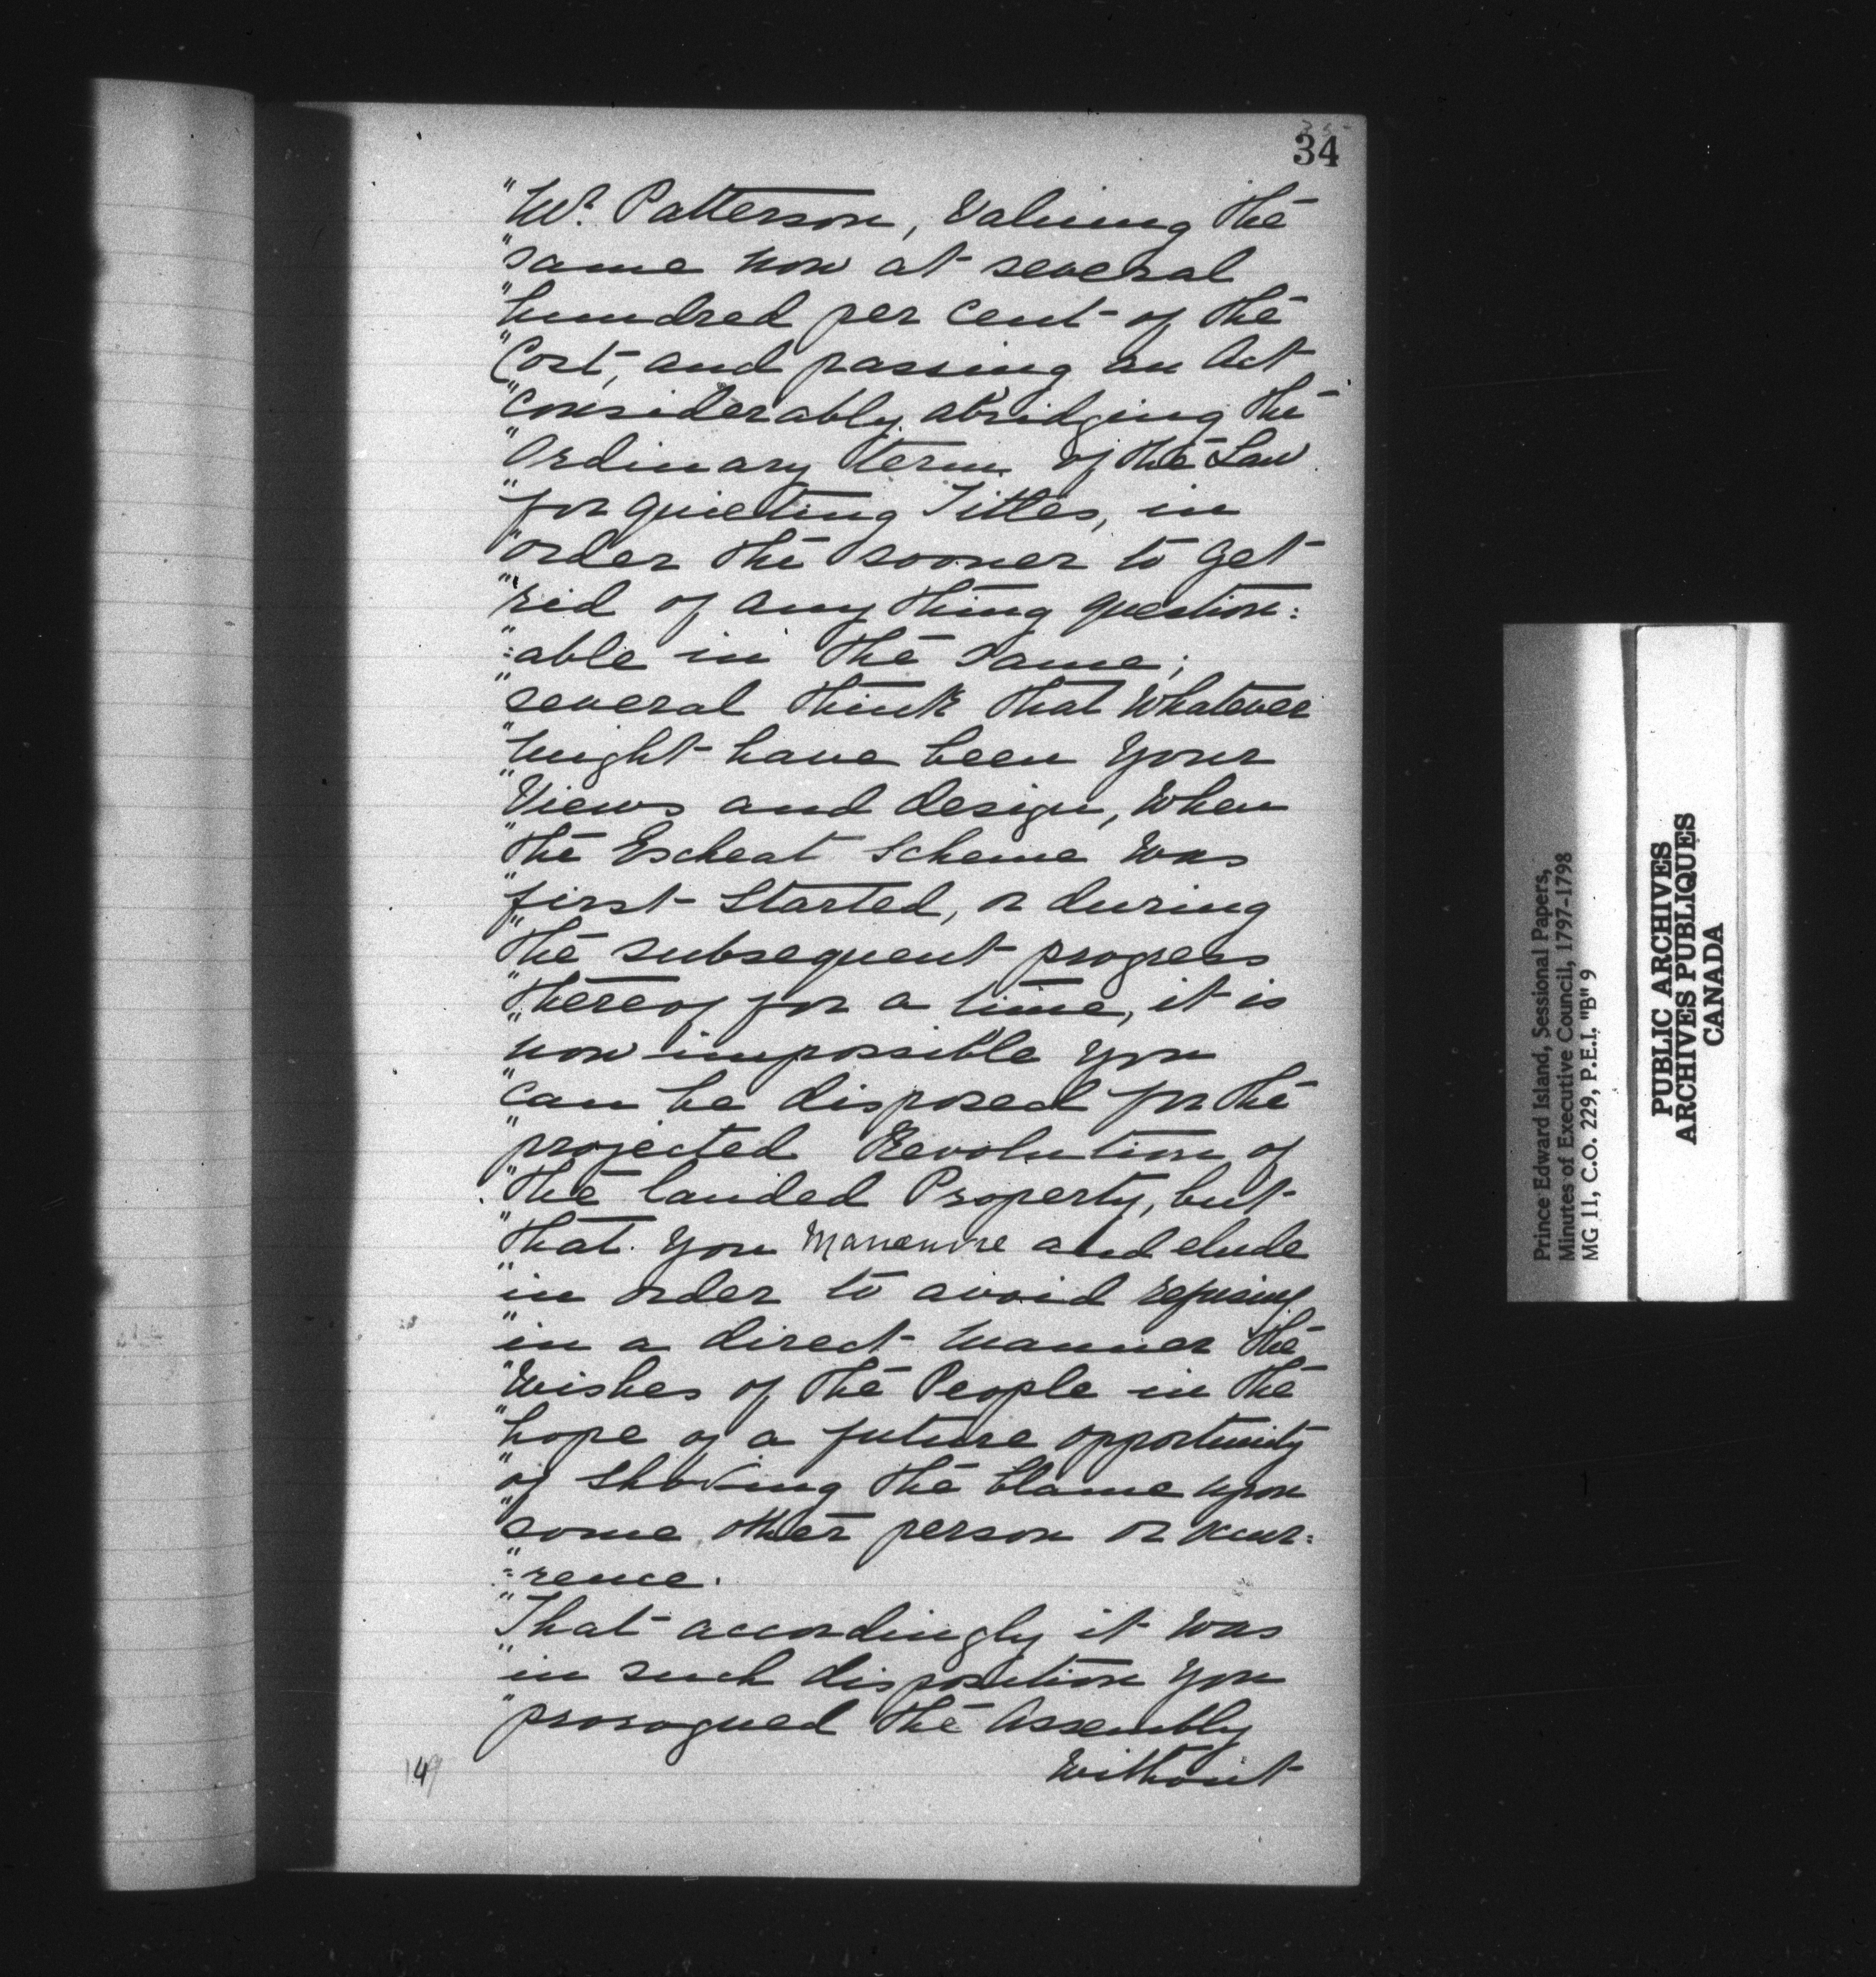 34
"Mr. Patterson, Valuing the
"same now at several
"hundred per cent of the
"Cost, and passing an Act
"considerably abridging the
"Ordinary term of the Law
"for quieting Titles, in
"order the sooner to get
"rid of any thing question:
":able in the same;
"several think that whatever
"might have been your
"Views and design, when
"the Escheat Scheme was
"first Started, or during
"the subsequent progress
"thereof for a time, it is
"now impossible you
"can be disposed for the
"projected Revolution of
"the landed Property, but
"that you Manenvre and elude
"in order to avoid refusing
"in a direct manner the
"Wishes of the People in the
"hope of a future opportunity
"of shoving the blame upon
"some other person or occur:
":rence.
"That accordingly it was
"in such disposition you
"prorogued the Assembly
Without
149
Prince Edward Island, Sessional Papers,
Minutes of Executive Council, 1797-1798
MG 11, C.O. 229, P.E.I. "B" 9
PUBLIC ARCHIVES
ARCHIVES PUBLIQUES
CANADA